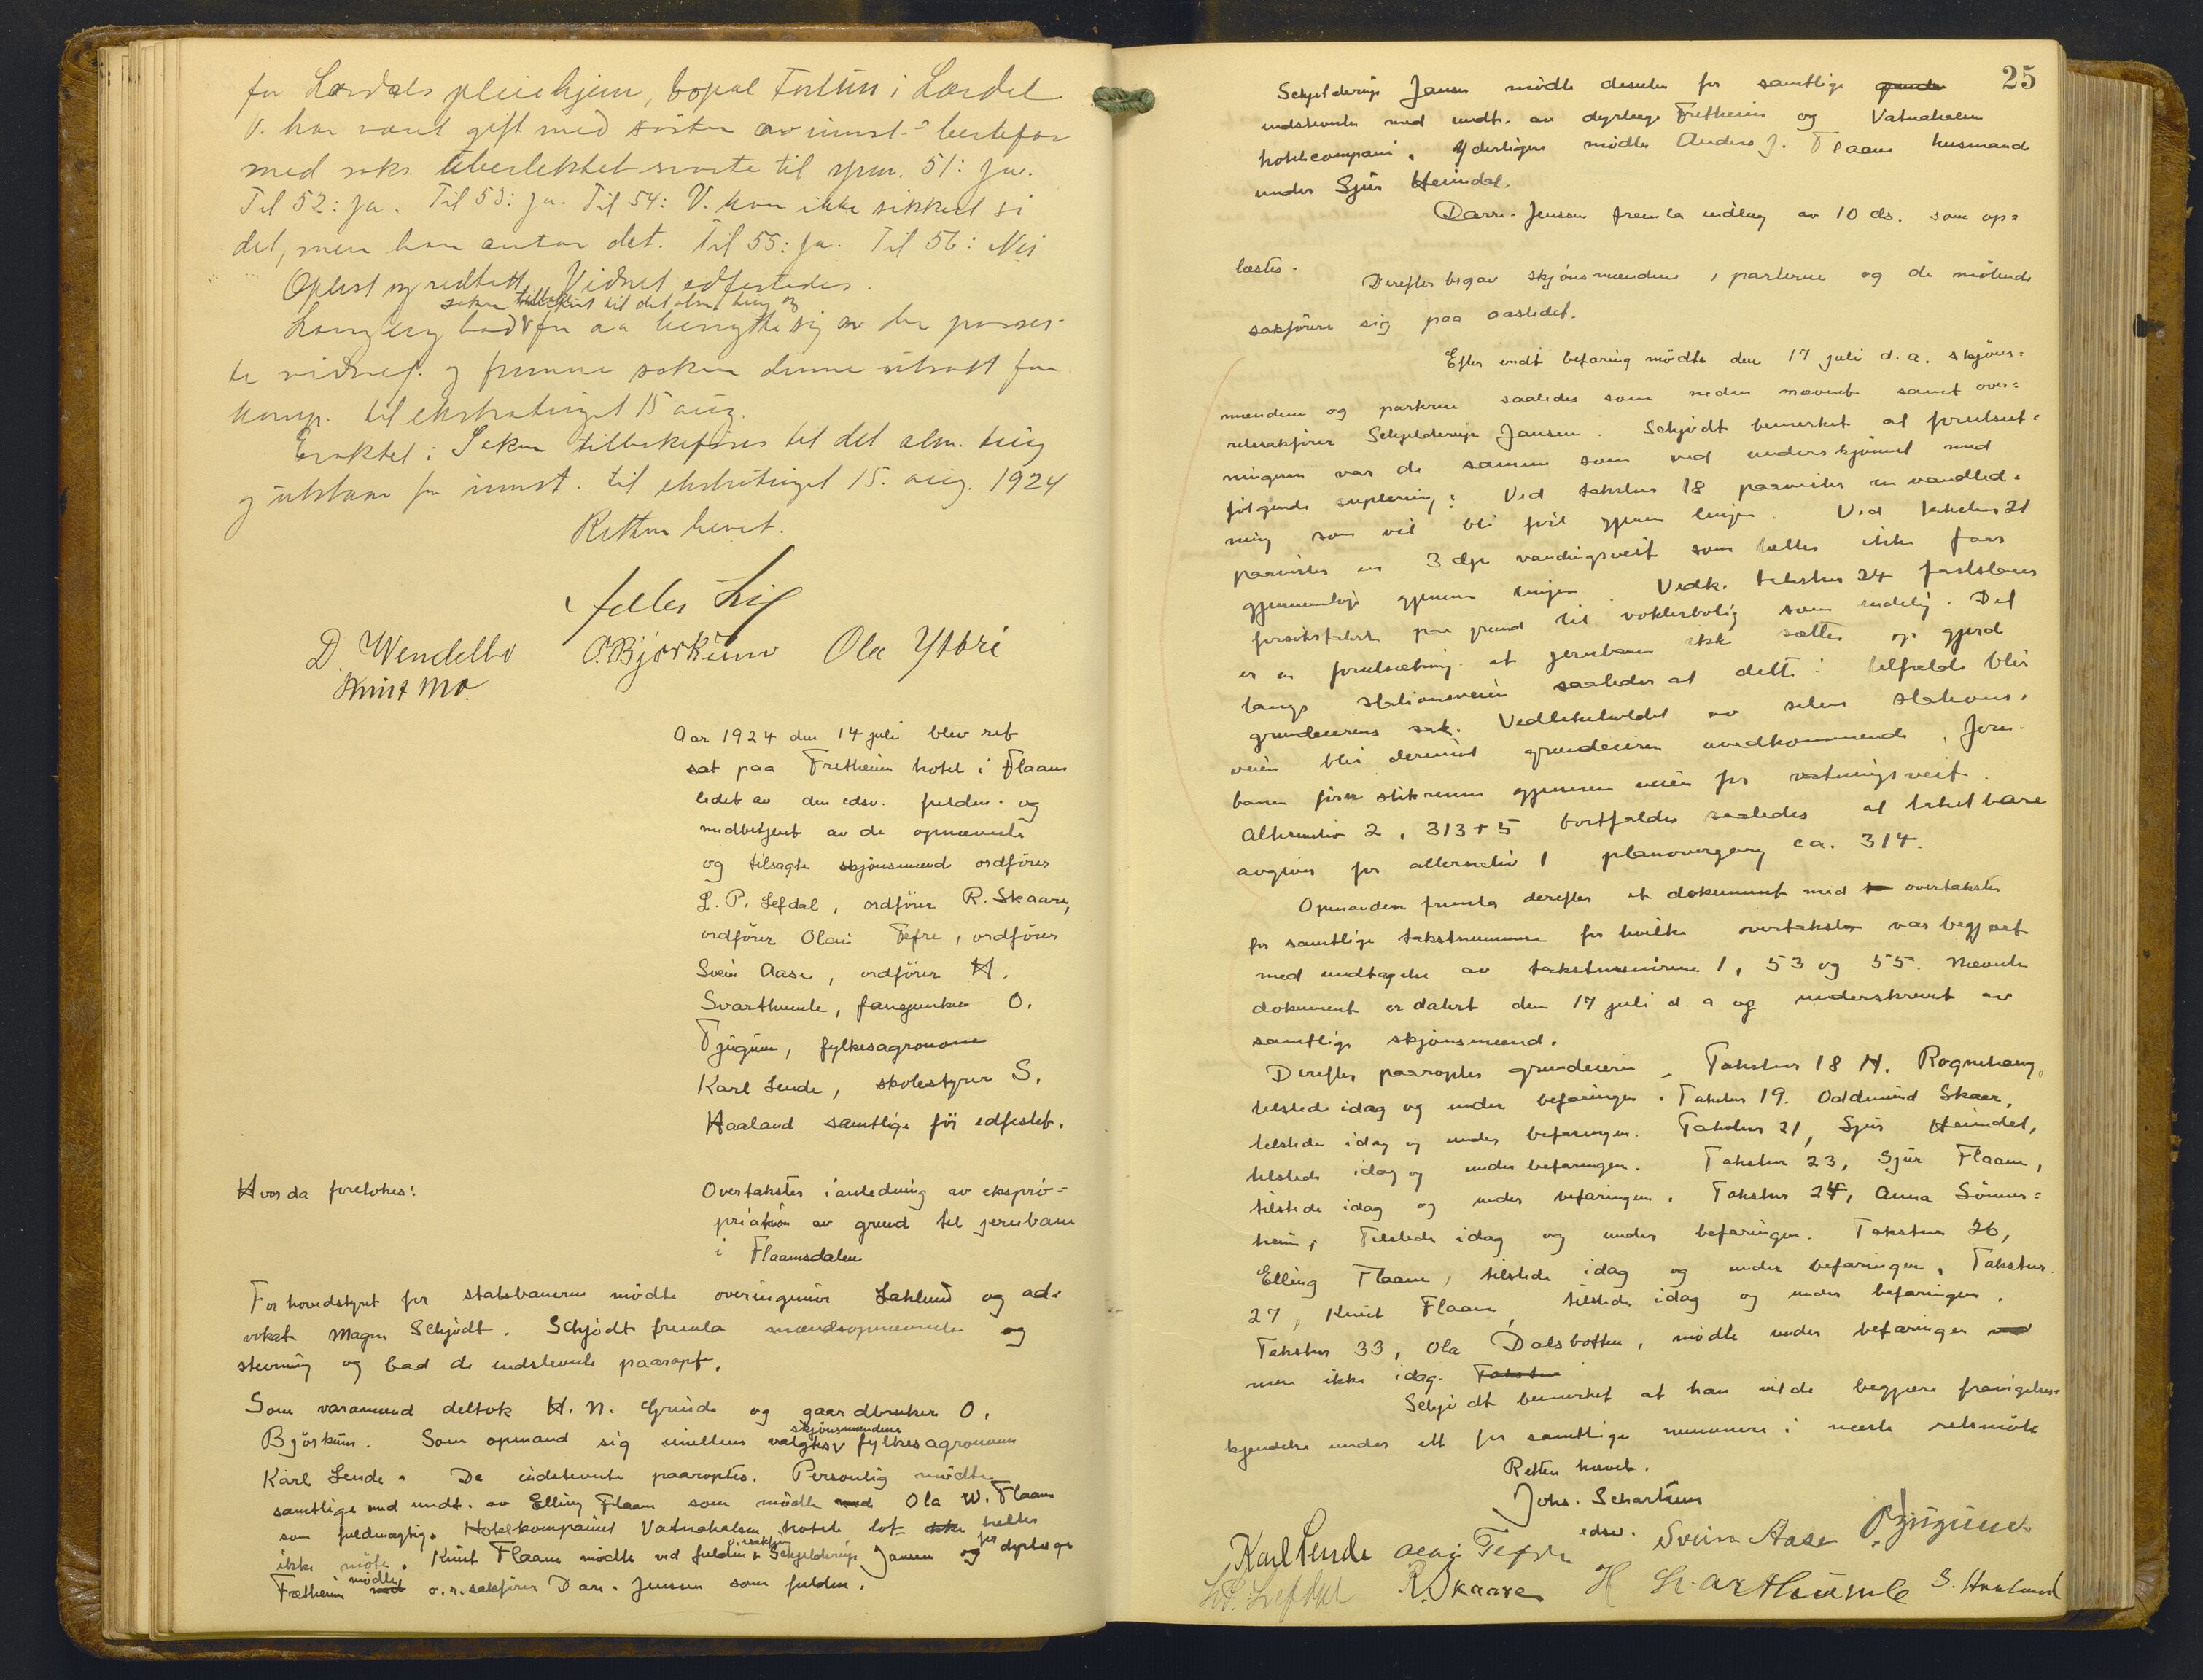 for Lærdals pleiehjem, bopæl Fortun i Lærdal
V. har været gift med søster av innst.s bestefar
med saks. Uberlektet svarte til spm. 51: Ja.
Til 52: Ja. Til 53: Ja. Til 54: V. kan ikke sikkert si
det, men han antar det. Til 55: Ja. Til 56: Nei
Oplest og vedtatt. Vidnet edfestedes.
saken tilbakeført til det alm. ting og
bad for aa benytte sig av de
te vidnef. og fremme saken denne utsatt for
komp. til ekstratinget 15 aug.
Eraktet: Saken tilbakeføres til det alm. ting
og utstaar for innst. til ekstratinget 15. aug. 1924
Retten hevet.
D. Wendelbo O. Bjørkum Ola Yttri
Knut Mo.
Aar 1924 den 14 juli blev ret
sat paa Fretheim hotel i Flaam
ledet av den edsv. fuldm. og
medbetjent av de opnævnte
og tilsagte skjønsmænd ordfører
L. P. Lefdal, ordfører R. Skaare,
ordfører Olai Tefre, ordfører
Svein Aase, ordfører H.
Svarthumle, O.
Tjugum, fylkesagronom
Karl Lende, skolestyrer S.
Haaland samtlige før edfestet.
Hvor da foretokes:
Overtakster i anledning av ekspro=
priation av grund til jernbane
i Flaamsdalen
For hovedstyret for statsbanerne mødte overingeniør Lahlum og ad=
vokat Magne Schjødt. Schjødt fremla mændsopnævnelse og
stevning og bad de indstevnte paaropt.
Som varamænd deltok H. N. Grinde og gaardbruker O.
Bjørkum. Som opmand sig imellem valgtes skjønsmændene fylkesagronom
Karl Lende. De indstevnte paaroptes. Personlig mødte
samtlige med undt. av Elling Flaam som mødte ved Ola W. Flaam
som fuldmægtig. Hotelkompaniet Vatnahalsen hotel lot ikke heller
ikke møte. Knut Flaam mødte ved fuldm. o.r.sakfører Schjelderup Jansen og for dyrlæge
Fretheim mødte o.r.sakfører Dan. Jensen som fuldm.
25
Schjelderup Jansen mødte desuten for samtlige grunde
indstevnte med undt. av dyrlæge Fretheim og Vatnahalsen
hotelcompani. Yderligere mødte Anders J. Flaam husmand
under Sjur Heimdal.
Dan. Jensen fremla indlæg av 10 ds. som op=
læstes.
Derefter begav skjønsmændene, parterne og de møtende
sakførere sig paa aastedet.
Efter endt befaring mødte den 17 juli d.a. skjøns=
mændene og parterne saaledes som neden nævnt samt over=
retssakfører Schjelderup Jansen. Schjødt bemerket at forutsæt=
ningene var de samme som ved underskjønnet med
følgende suplering: Ved takstnr 18 paavistes en vandled=
ning som vil bli ført gjennem linjen. Ved takstnr 21
paavistes en 3 dje vandingsveit som heller ikke faar
gjennemløp gjennem linjen. Vedk. takstnr 24 fastslaaes
forsøkstakst paa grund til vokterbolig som endelig. Det
er en forutsætning at jernbanen ikke sætter op gjerd
langs stationsveien saaledes at dette i tilfælde blir
grundeierens sak. Vedlikeholdet av selve stations=
veien blir derimot grundeieren uvedkommende. Jern=
banen fører stikrenne gjennem veien for vatningsveit.
Alternativ 2, 313+5 bortfalder saaledes at takst bare
avgives for alternativ 1 planovergang ca. 314.
Opmanden fremla derefter et dokument med overtakster
for samtlige takstnummere for hvilke overtakster var begjært
med undtagelse av takstnummerne 1, 53 og 55. Nævnte
dokument er datert den 17 juli d.a og underskrevet av
samtlige skjønsmænd.
Derefter paaroptes grundeierne. Takstnr 18 H. Rognehaug,
tilstede idag og under befaringen. Takstnr 19. Oddmund Skaar,
tilstede idag og under befaringen. Takstnr 21, Sjur Heimdal,
tilstede idag og under befaringen. Takstnr 23, Sjur Flaam,
tilstede idag og under befaringen. Takstnr 24, Anna Sønner=
heim, Tilstede idag og under befaringen. Takstnr 26,
Elling Flaam, tilstede idag og under befaringen, Takstnr.
27, Knut Flaam, tilstede idag og under befaringen.
Takstnr 33, Ola Dalsbotten, mødte under befaringen
men ikke idag. Takstnr
Schjødt bemerket at han vilde begjære fravigelses=
kjendelse under ett for samtlige nummere i næste retsmøte
Retten hævet.
Johs. Schartum
edsv.
Karl Lende Olai Tefre Svein Aase O Tjugum
L.P. Lefdal R. Skaare H Svarthumle S. Haaland